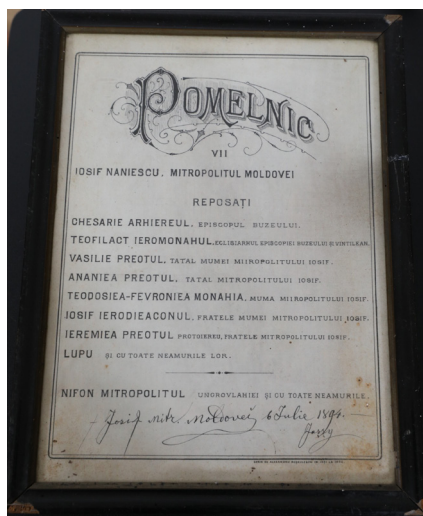 POMELNIC
VII
IOSIF NANIESCU, MITROPOLITUL MOLDOVEI
REPOSAȚI
CHESARIE ARHIEREUL, EPISCOPUL BUZEULUI.
TEOFILACT IEROMONAHUL, ECLISIARHUL EPISCOPIEI BUZEULUI ȘI VINTILEAN.
VASILIE PREOTUL, TATAL MUMEI MITROPOLITULUI IOSIF.
ANANIEA PREOTUL, TATAL MITROPOLITULUI IOSIF.
TEODOSIEA-FEVRONIEA MONAHIA, MUMA MITROPOLITULUI IOSIF.
IOSIF IERODIEACONUL, FRATELE MUMEI MITROPOLITULUI IOSIF.
IEREMIEA PREOTUL PROTOIEREU, FRATELE MITROPOLITULUI IOSIF.
LUPU ȘI CU TOATE NEAMURILE LOR.
NIFON MITROPOLITUL UNGROVLANIEI ȘI CU TOATE NEAMURILE.
Iosif Mitr. Moldovei 6 Iulie 1894